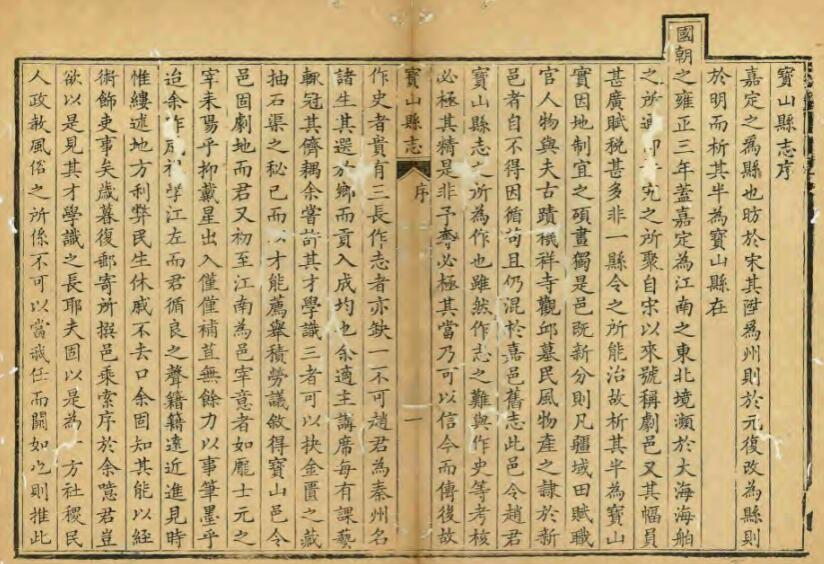 寶山縣志序
嘉定之為縣也昉於宋其陞為州則於元復改為縣則
於明而析其半為寶山縣在
國朝之雍正三年蓋嘉定為江南之東北境瀕於大海海舶
之所通宄之所聚自宋以來號稱劇邑又其幅員
甚廣賦稅甚多非一縣令之所能治故析其半為寶山
實因地制宜之碩畫獨是邑既新分則凡疆域田賦職
官人物與夫古蹟禨祥寺觀邱墓民風物產之隸於新
邑者自不得因循苟且仍混於嘉邑舊志此邑令趙君
寶山縣志之所為作也雖然作志之難與作史等考核
必極其精是非予奪必極其當乃可以信今而傳後故
寶山縣志 序 一
作史者貴有三長作志者亦缺一不可趙君為秦州名
諸生其選於鄉而貢入成均也余適主講席每有課藝
輒冠其儕耦余嘗許其才學識三者可以抉金匱之藏
抽石渠之秘已而以才能薦舉積勞議敘得寶山邑令
邑固劇地而君又初至江南為邑宰意者如龐士元之
宰耒陽乎抑戴星出入僅僅補苴無餘力以事筆墨乎
迨余昨歲視學江左而君循良之聲籍籍遠近進見時
惟縷述地方利弊民生休戚不去口余固知其能以經
術飾吏事矣歲暮復郵寄所撰邑乘索序於余噫君豈
欲以是見其才學識之長耶夫固以是為一方社稷民
人政教風俗之所係不可以當我任而闕如也則推此